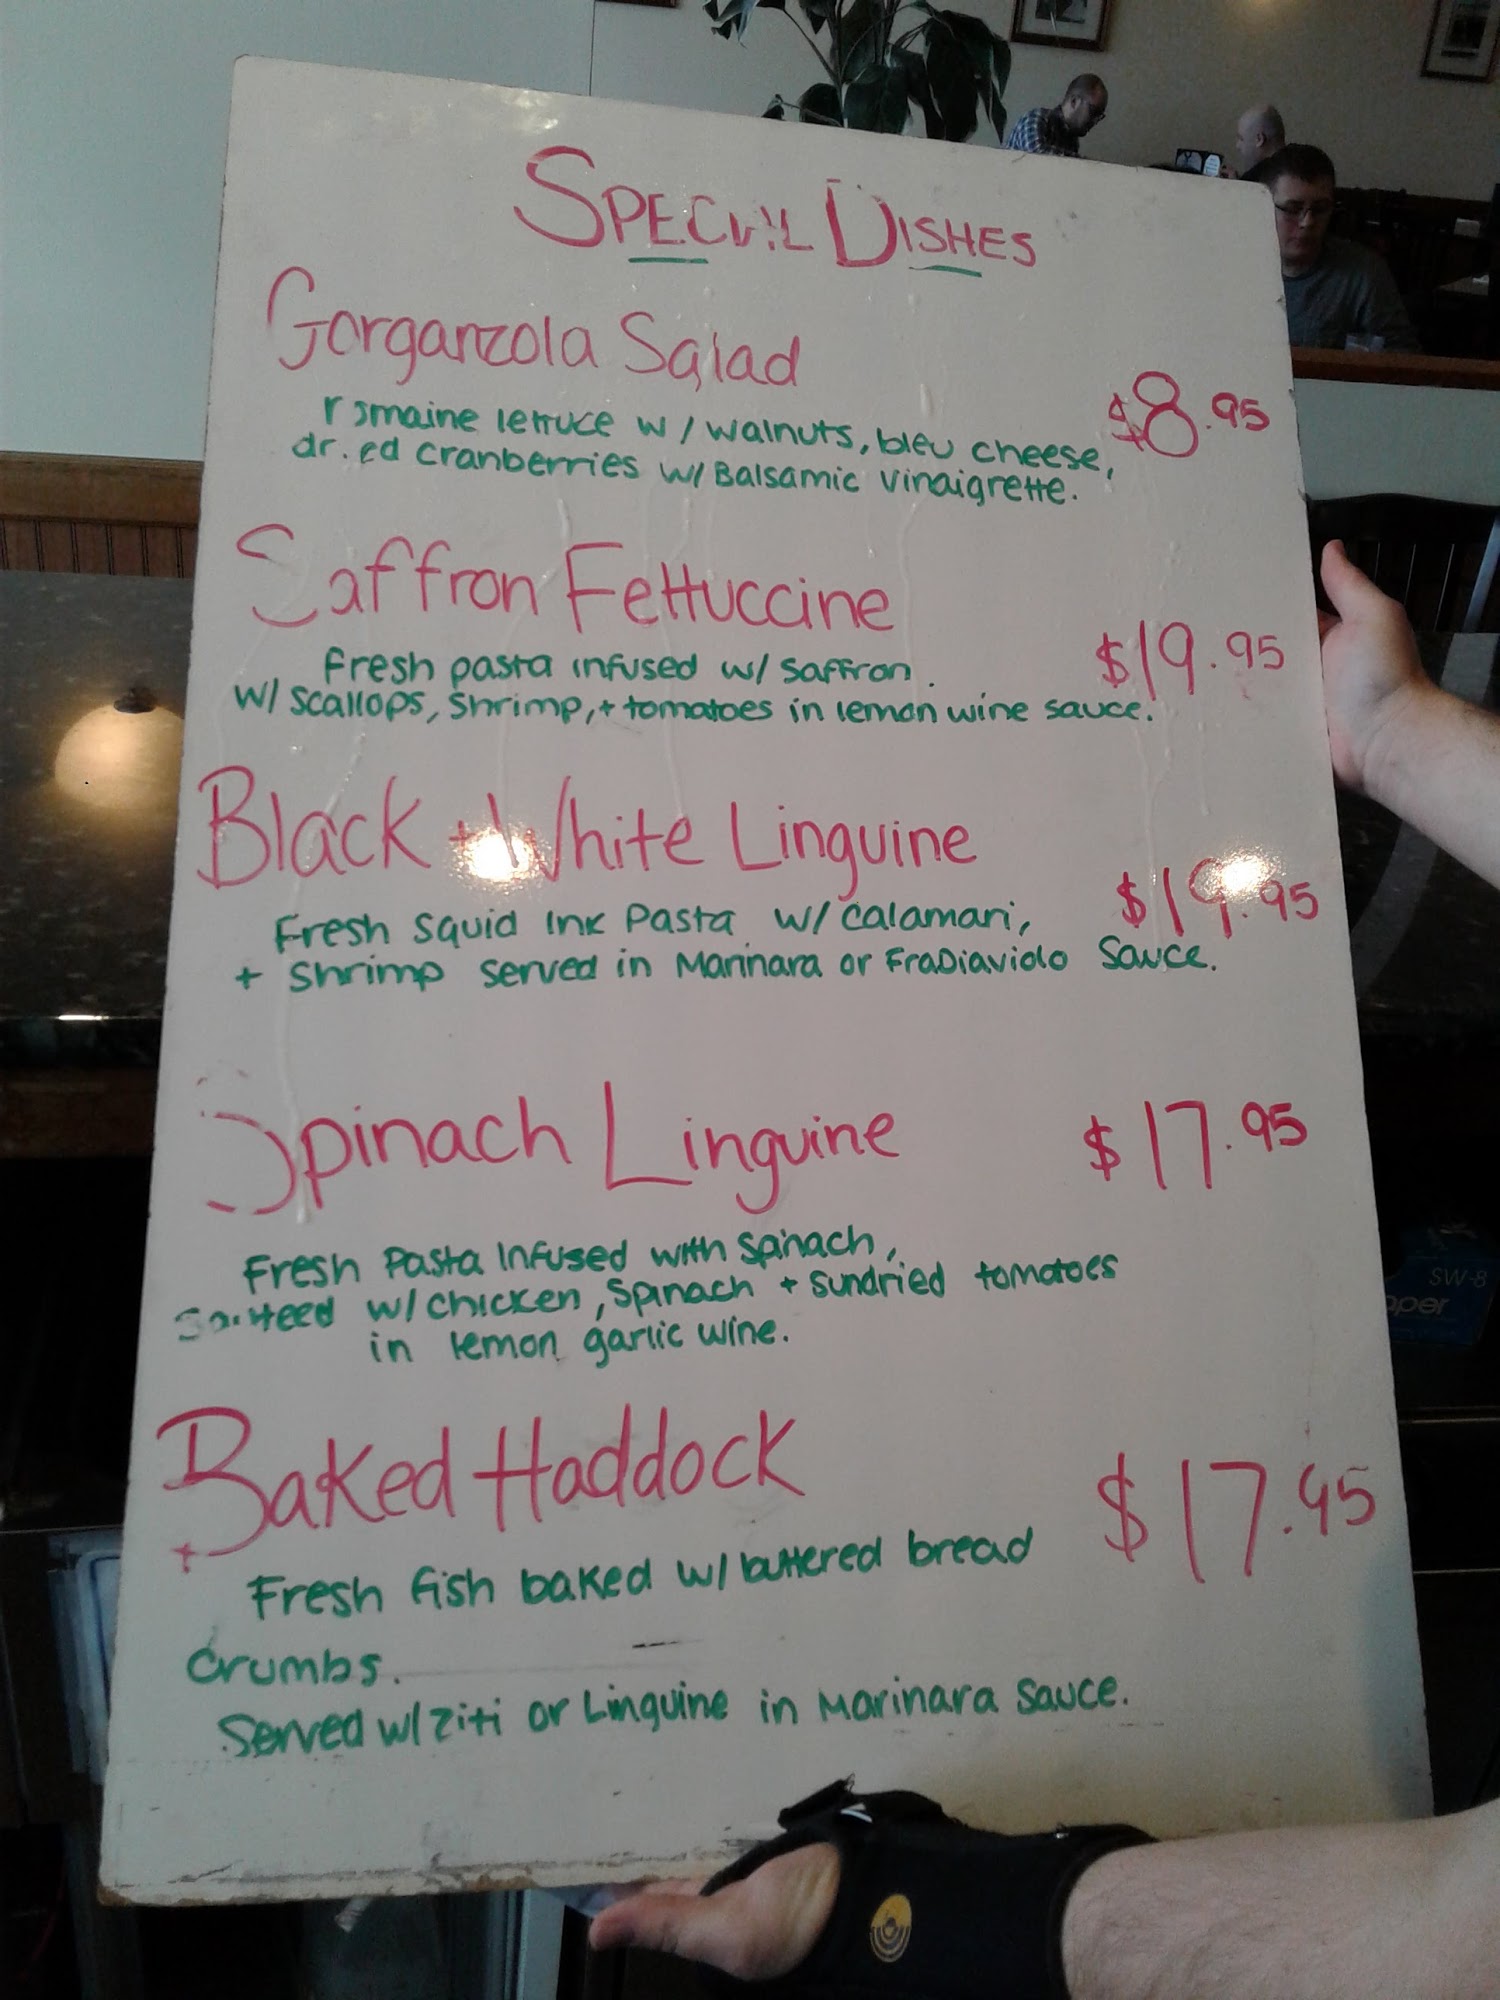 SPECIAL DISHES
Gorganzola Salad
romaine lettuce w/ walnuts, bleu cheese,
$8.95
dried cranberries w/ Balsamic Vinaigrette.
Saffron Fettuccine
Fresh pasta infused w/ saffron.
$19.95
w/ scallops, shrimp, + tomatoes in lemon wine sauce.
Black + White Linguine
$19.95
Fresh Squid Ink Pasta w/ calamari,
+ Shrimp served in Marinara or FraDiavlolo Sauce.
Spinach Linguine
$17.95
Fresh Pasta Infused with spinach,
Sauteed w/ chicken, Spinach + sundried tomatoes
in lemon garlic wine.
Baked Haddock
$17.95
Fresh fish baked w/ buttered bread
crumbs.
Served w/ ziti or Linguine in Marinara sauce.
SW-8